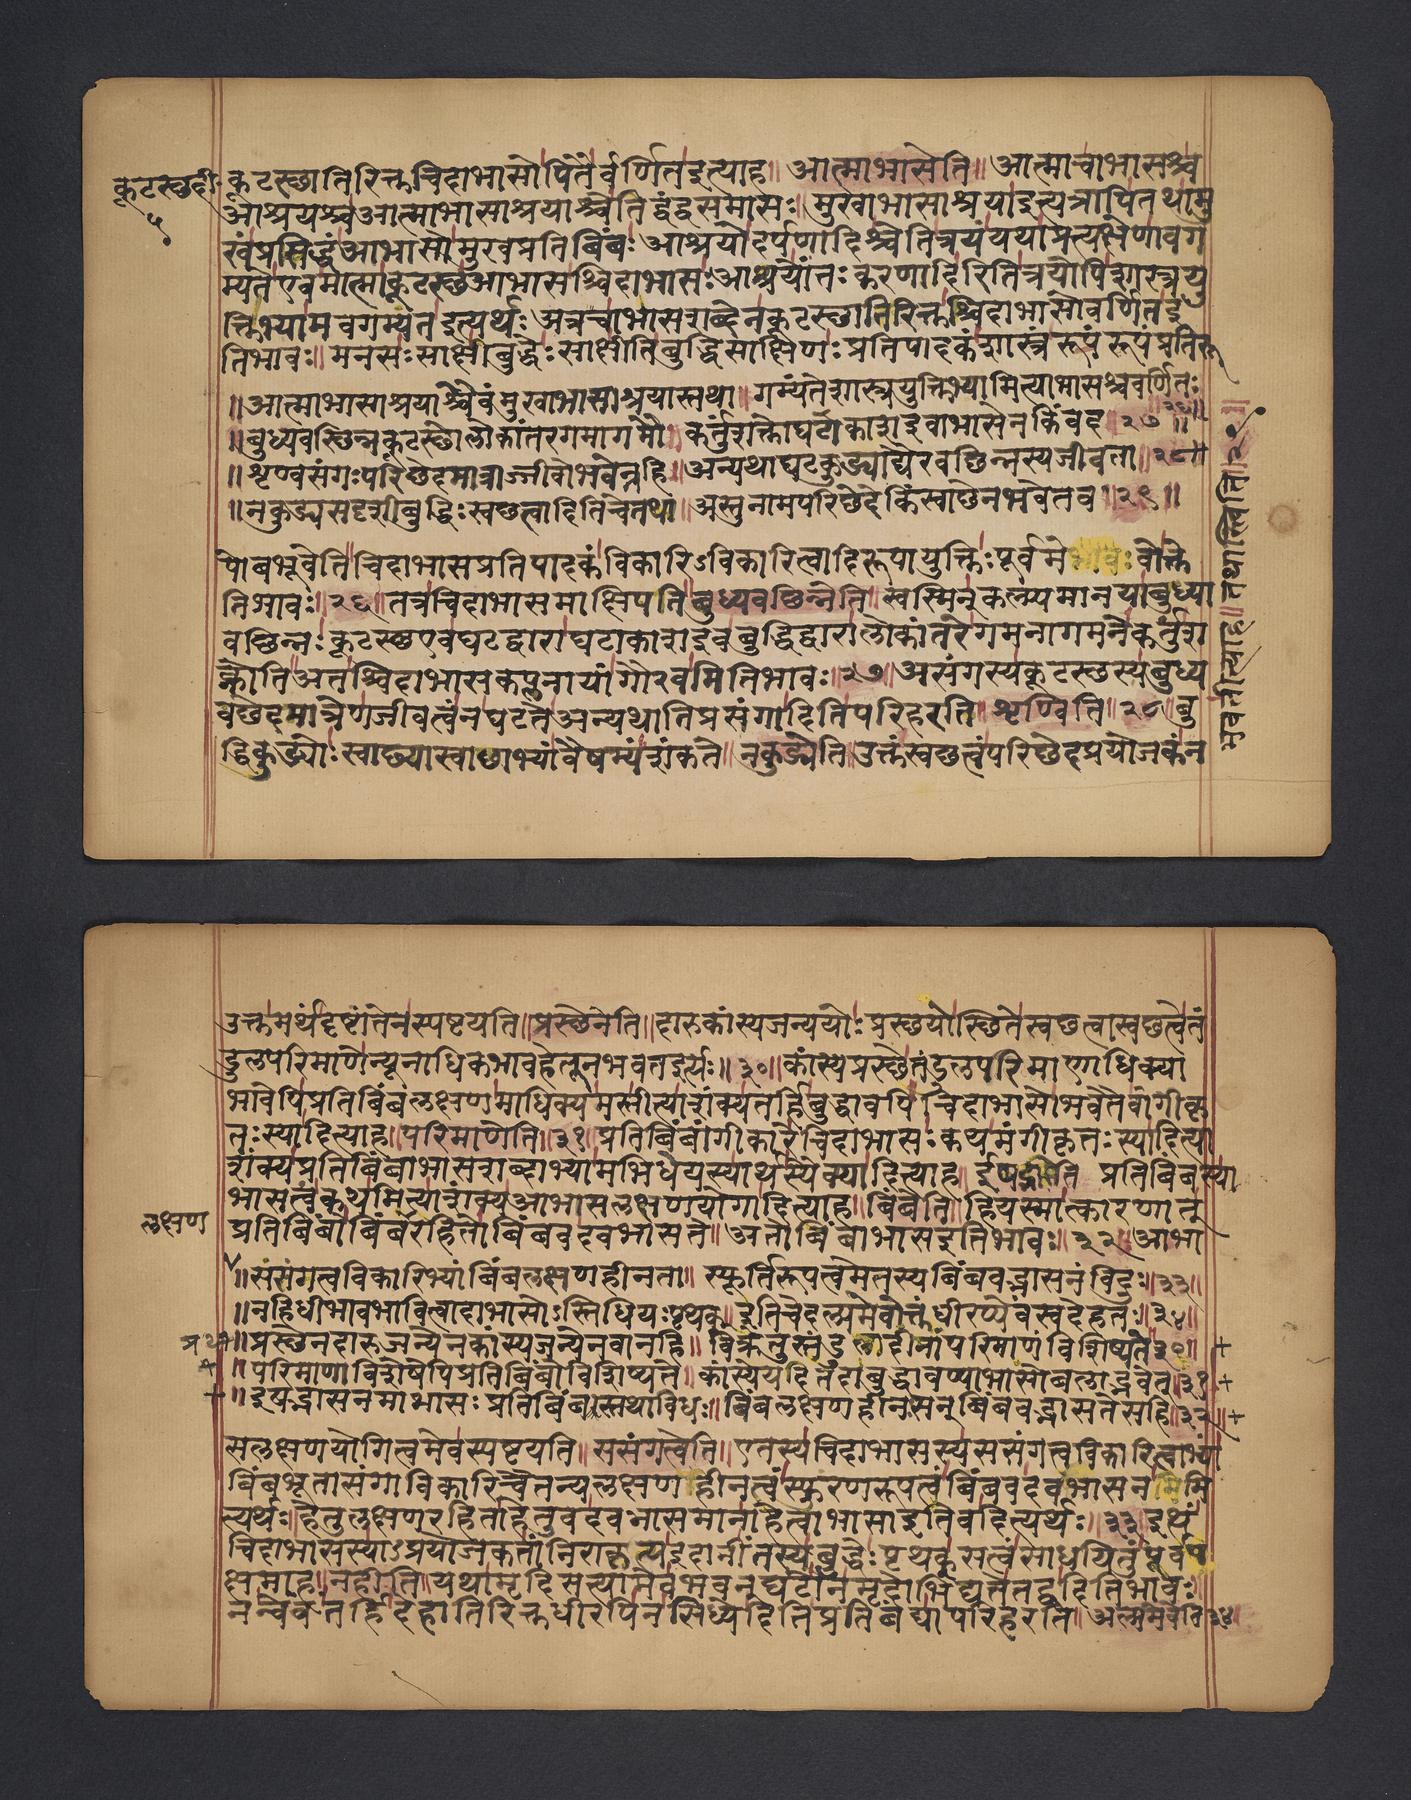 कूटस्छदी
५
कूटस्छातिरिक्तचिदाभासोपितैर्वर्णितइत्याह॥ आत्माभासेति॥ आत्माचाभासश्च
आश्रयश्चआत्माभासाश्रयाश्चेतिद्वंद्वसमासः॥ मुखाभासाश्रयाइत्यत्रापितथामु
खंप्रसिद्धंआभासोमुखप्रतिबिंबः आश्रयोदर्पणादिश्चेतित्रयंयथाप्रत्यक्षेणावग
म्यतेएवमात्माकूटस्छआभासश्चिदाभासःआश्रयोंतःकरणादिरितित्रयोपिशास्त्रयु
क्तिभ्यामवगम्यंतइत्यर्थः अत्रचाभासशब्देनकूटस्छातिरिक्तश्चिदाभासोवर्णितइ
तिभावः॥ मनसःसाक्षीबुद्धेःसाक्षीतिबुद्धिसाक्षिणःप्रतिपादकंशास्त्रंरूपंरूपंप्रतिरू
॥आत्माभासाश्रयाश्चैवंमुखाभासाश्रयास्तथा॥ गम्यंतेशास्त्रयुक्तिभ्यामित्याभासश्चवर्णितः २६॥
॥बुध्यवछिन्नकूटस्छोलोकांतरगमागमौ॥ कर्तुंशक्तोघटाकाशइवाभासेनकिंवद २७॥
॥शृण्वसंगःपरिछेदमात्राज्जीवोभवेन्नहि॥ अन्यथाघटकुड्याद्यैरवछिन्नस्यजीवता॥ २८॥
॥नकुड्यसदृशीबुद्धिःस्वछत्वादितिचेत्तथा॥ अस्तुनामपरिछेदेकिंस्वाछेनभवेत्तव॥२९॥
पोबभूवेतिचिदाभासप्रतिपादकंविकारिऽविकारित्वादिरूपायुक्तिःपूर्वमेवोक्ते
तिभावः॥२६॥तत्रचिदाभासमाक्षिपतिबुध्यवछिन्नेति॥स्वस्मिन्कल्प्यमानयाबुध्या
वछिन्नःकूटस्छएवघटद्वाराघटाकाशइवबुद्धिद्वारालोकांतरेगमनागमनेकर्तुंश
क्नोतिअतश्चिदाभासकल्पनायांगौरवमितिभावः॥२७॥असंगस्यकूटस्छस्यबुध्य
वछेदमात्रेणजीवत्वंनघटतेअन्यथातिप्रसंगादितिपरिहरति॥शृण्विति॥२८॥बु
द्धिकुड्योःस्वाछ्यास्वाछाभ्यांवैषम्यंशंकते॥नकुड्येति॥उक्तंस्वछत्वंपरिछेदप्रयोजकंन
भवतीत्याह॥तथास्त्विति॥
उक्तमर्थंदृष्टांतेनस्पष्टयति॥प्रस्छेनेति॥दारुकांस्यजन्ययोःप्रस्छयोस्छितेस्वछत्वास्वछत्वेतं
डुलपरिमाणेन्यूनाधिकभावहेतूनभवतइत्यर्थः॥३०॥कांस्येप्रस्छेतंडुलपरिमाणाधिक्या
भावेपिप्रतिबिंबलक्षणमाधिक्यमस्तीत्याशंक्यतर्हिबुद्धावपिचिदाभासोभवतैवांगीकृ
तःस्यादित्याह॥परिमाणेति॥३१॥प्रतिबिंबांगीकारेचिदाभासःकथमंगीकृतःस्यादित्या
शंक्यप्रतिबिंबाभासशब्दाभ्यामभिधेयस्यार्थस्यैक्यादित्याह॥ईषद्भासेति प्रतिबिंबस्या
भासत्वंकथमित्याशंक्यआभासलक्षणयोगादित्याह॥बिंबेति॥हियस्मात्कारणात्
लक्षण
प्रतिबिंबोबिंबरहितोबिंबवदवभासते॥अतोबिंबाभासइतिभावः॥३२॥आभा
॥ससंगत्वविकारिभ्यांबिंबलक्षणहीनता॥ स्फूर्तिरूपत्वमेतस्यबिंबवद्भासनंविदुः॥३३॥
॥नहिधीभावभावित्वादाभासोऽस्तिधियःपृथक्॥इतिचेदल्पमेवोक्तंधीरप्येवंस्वदेहतः॥३४॥
॥प्रस्छेनदारुजन्येनकांस्यजन्येनवानहि॥ विक्रेतुस्तंडुलादीनांपरिमाणंविशिष्यते३०॥
॥परिमाणाविशेषेपिप्रतिबिंबोविशिष्यते॥ कांस्येयदितदाबुद्धावप्याभासोबलाद्भवेत्॥३१
॥इषद्भासनमाभासःप्रतिबिंबस्तथाविधः॥बिंबलक्षणहीनःसन्बिंबवद्भासतेसहि॥३२॥
सलक्षणयोगित्वमेवस्पष्टयति॥ससंगत्वेति॥एतस्यचिदाभासस्यससंगत्वविकारित्वाभ्यां
बिंबभूतासंगाविकारिचैतन्यलक्षणहीनत्वंस्फुरणरूपत्वंबिंबवदवभासनमि
त्यर्थः॥हेतुलक्षणरहिताहेतुवदवभासमानाहेत्वाभासाइतिवदित्यर्थः॥३३इत्थं
चिदाभासस्याऽप्रयोजकतांनिराकृत्यइदानींतस्यबुद्धेःपृथक्सत्वंसाधयितुंपूर्वप
क्षमाह॥नहीति॥यथामृदिसत्यामेवभवन्घटोनमृदोभिद्यतेतद्वदितिभावः
नन्वेवंतर्हिदेहातिरिक्तधीरपिनसिध्येदितिप्रतिबंद्यापरिहरति॥अल्पमेवेति३४॥